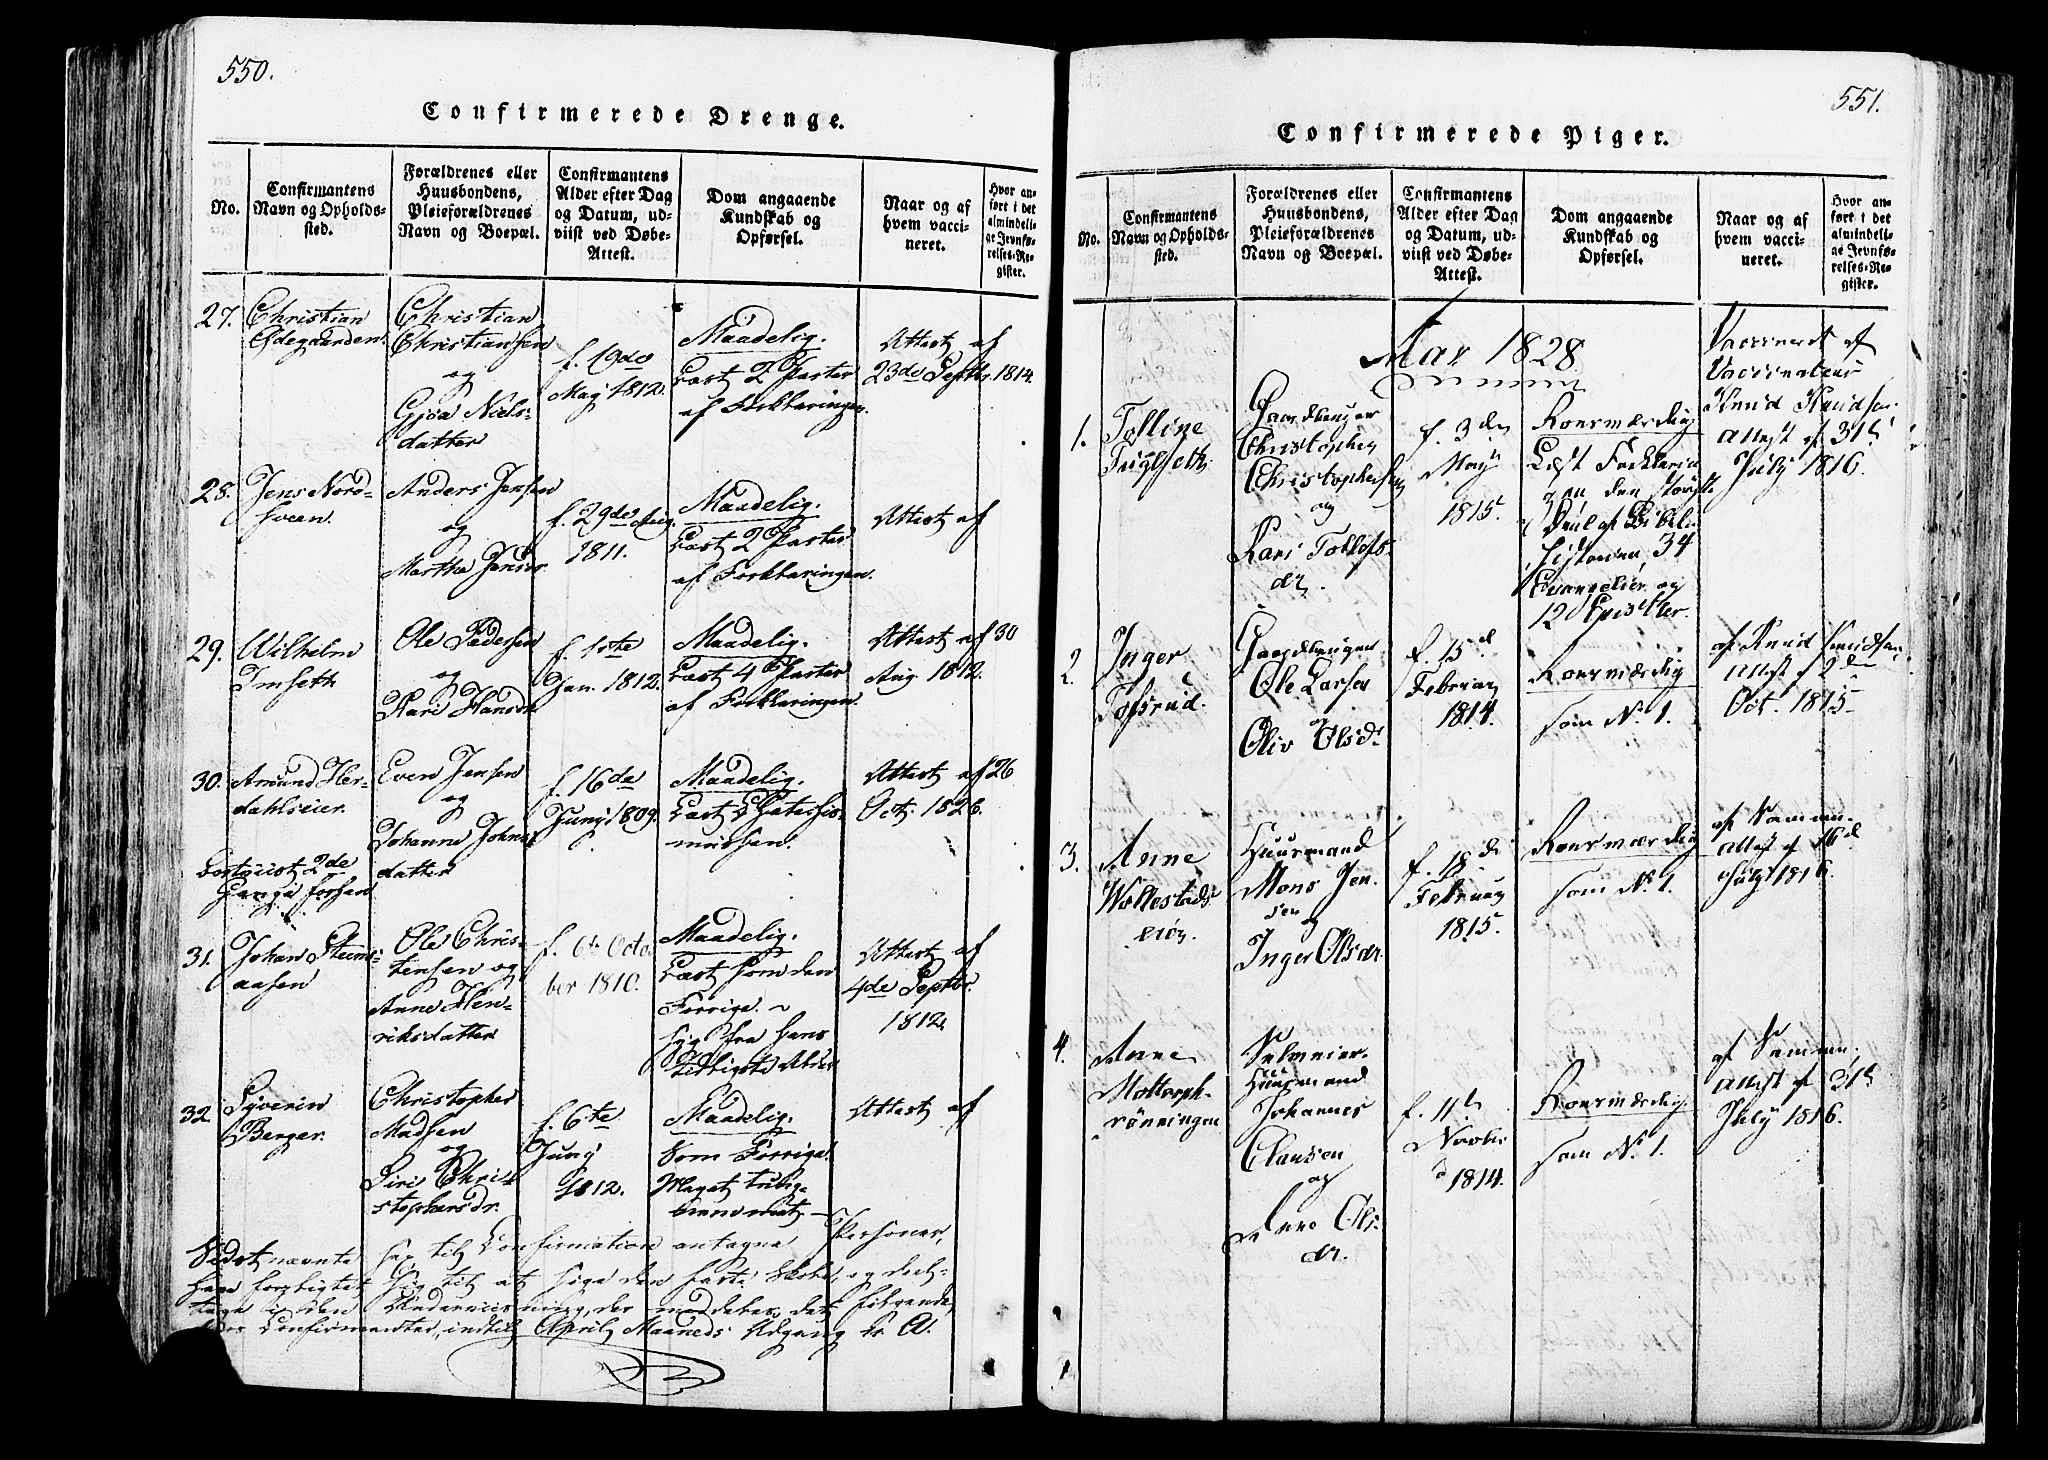 550.
Confirmerede Drenge.
No.
Confirmantens
Navn og Opholds-
sted.
Forældrenes eller
Huusbondens,
Pleieforældrenes
Navn og Boepæl.
Confirmantens
Alder efter Dag
og Datum, ud-
viist ved Døbe-
Attest.
Dom angaaende
Kundskab og
Opførsel.
Naar og af
hvem vacci-
neret.
Hvor an-
ført i det
almindeli-
ge Jevnfø-
relses-Re-
gister.
27.
Christian
Ødegaarden.
Christian
Christiansen
og
Niels-
datter
f. 19de
May 1812.
Maadelig.
Læst 2 Parter
af Forklaringen.
Attest af
23de Septbr. 1814.
28.
Jens Nord-
sveen.
Anders Jensen
og
Marthe Jensdr.
f. 29de Aug.
1811.
Maadelig.
Læst 2 Parter
af Forklaringen.
Attest af
29.
Wilhelm
Imseth
Ole Pedersen
og
Kari Hansdr.
f. 1ste
Jan. 1812.
Maadelig.
Læst 4 Parter
af Forklaringen.
Attest af 30
Aug. 1812.
30.
Amund Her-
dahlseier.
2de
Even Jensen
og
Johanne Johns-
datter
f. 16de
Juny 1809.
Maadelig.
Læst Chatechis-
mussen.
Attest af 26
Oct. 1826.
31.
Johan Steens-
aasen
Ole Chris-
tensen og
Anne Hen-
riksdatter
f. 6te Octo-
ber 1810.
Maadelig.
Læst som den
Forrige. -
Syg fra hans
tidligste Alder
Attest af
4de Septbr.
1812.
32.
Syverin
Berger.
Christopher
Madsen
og
Siri Chri-
stophersdr.
f. 6te
Juny
1812.
Maadelig.
Som Forrige.
Meget
Attest af
Sidstnævnte sex til Confirmation antagne Personer,
have forpligtet sig til at søge den faste Skole, og deel-
tage i den Underviisning, der meddeles det følgende
Confirmanter, indtil April Maaneds Udgang
551.
Confirmerede Piger.
No.
Confirmantens
Navn og Opholds-
sted.
Forældrenes eller
Huusbondens,
Pleieforældrenes
Navn og Boepæl.
Confirmantens
Alder efter Dag
og Datum, ud-
viist ved Døbe-
Attest.
Dom angaaende
Kundskab og
Opførsel.
Naar og af
hvem vacci-
neret.
Hvor an-
ført i det
almindeli-
ge Jevnfø-
relses-Re-
gister.
Aar 1828.
1.
Tolline
Fuglseth.
Gaardbruger
Christopher
Christophersen
og
Kari Tollefs-
dr.
f. 3de
May
1815.
Roesværdig
Læst Forklarin-
gen, den største
Deel af Bibel-
historien, 34
Evangelier og
12 Epistler.
Vaccineret af
Vaccinateur
Knud Knudsen.
Attest af 31te
July 1816.
2.
Inger
Tofsrud.
Gaardbruger
Ole Larsen
og
Oliv Olsdr
f. 15d
Februar
1814.
Roesværdig
som No 1.
af Knud Knudsen.
Attest af 2den
Oct. 1815
3.
Anne
Wollestads-
eier.
Huusmand
Mons Jen-
sen
og
Inger Olsdr.
f. 18de
Februar
1815.
Roesværdig
som No 1.
af Samme.
Attest af 16d
July 1816.
4.
Anne
rønningen
Huusmand
Johannes
Clausen
og
Anne Ols-
dr.
f. 11te
Novbr
1814.
Roesværdig.
som No 1.
af Samme.
Attest af 31te
July 1816.